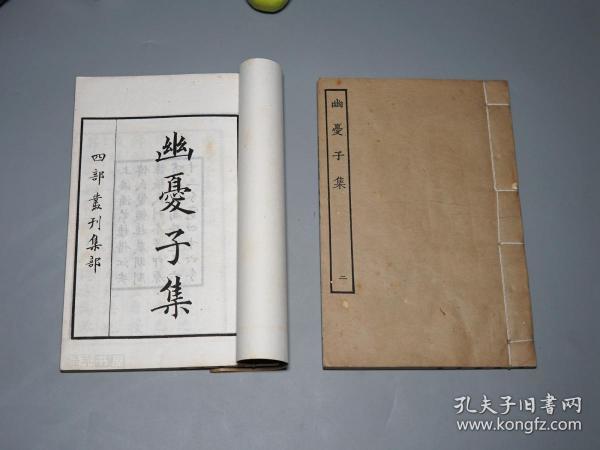 幽憂子集
四部叢刊集部
幽憂子集
二
孔夫子旧书网
www.kongfz.com